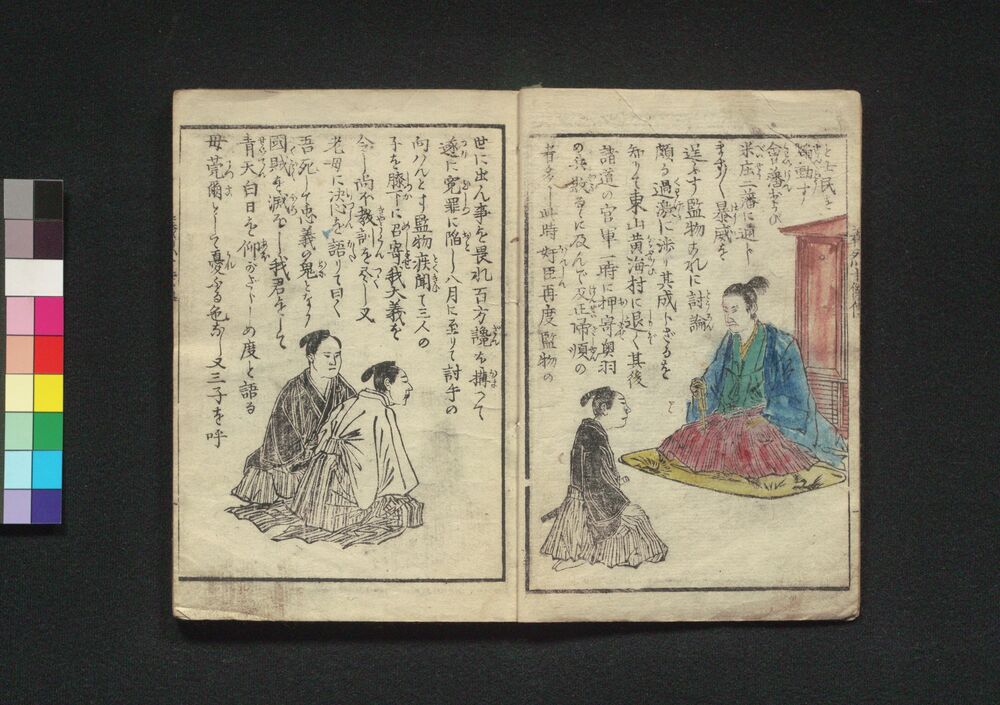 と士民を
煽動す
会津藩および
米庄二藩に通じ
ますます暴威を
逞ふす監物あれに討論
頗る過激に渉り其成下ざるを
知りて東山黄海村に退く其後
諸道の官軍一時に押寄奥羽
の
に及んで反正帰順の
者多し此時奸臣再度監物の
世に出ん事を畏れ百方讒を搆つて
遂に冤罪に陥し八月に至りて討手の
向ハんとす監物疾聞て三人の
子を膝下に召寄我大義を
今し尚不教訓を尽し又
老母に決心を語りて曰く
吾死して忠義の鬼となり
國賊を滅ぼし我君をして
青天白日を仰がざらしめ度と語る
母莞爾として憂ふる色なし又三子を呼